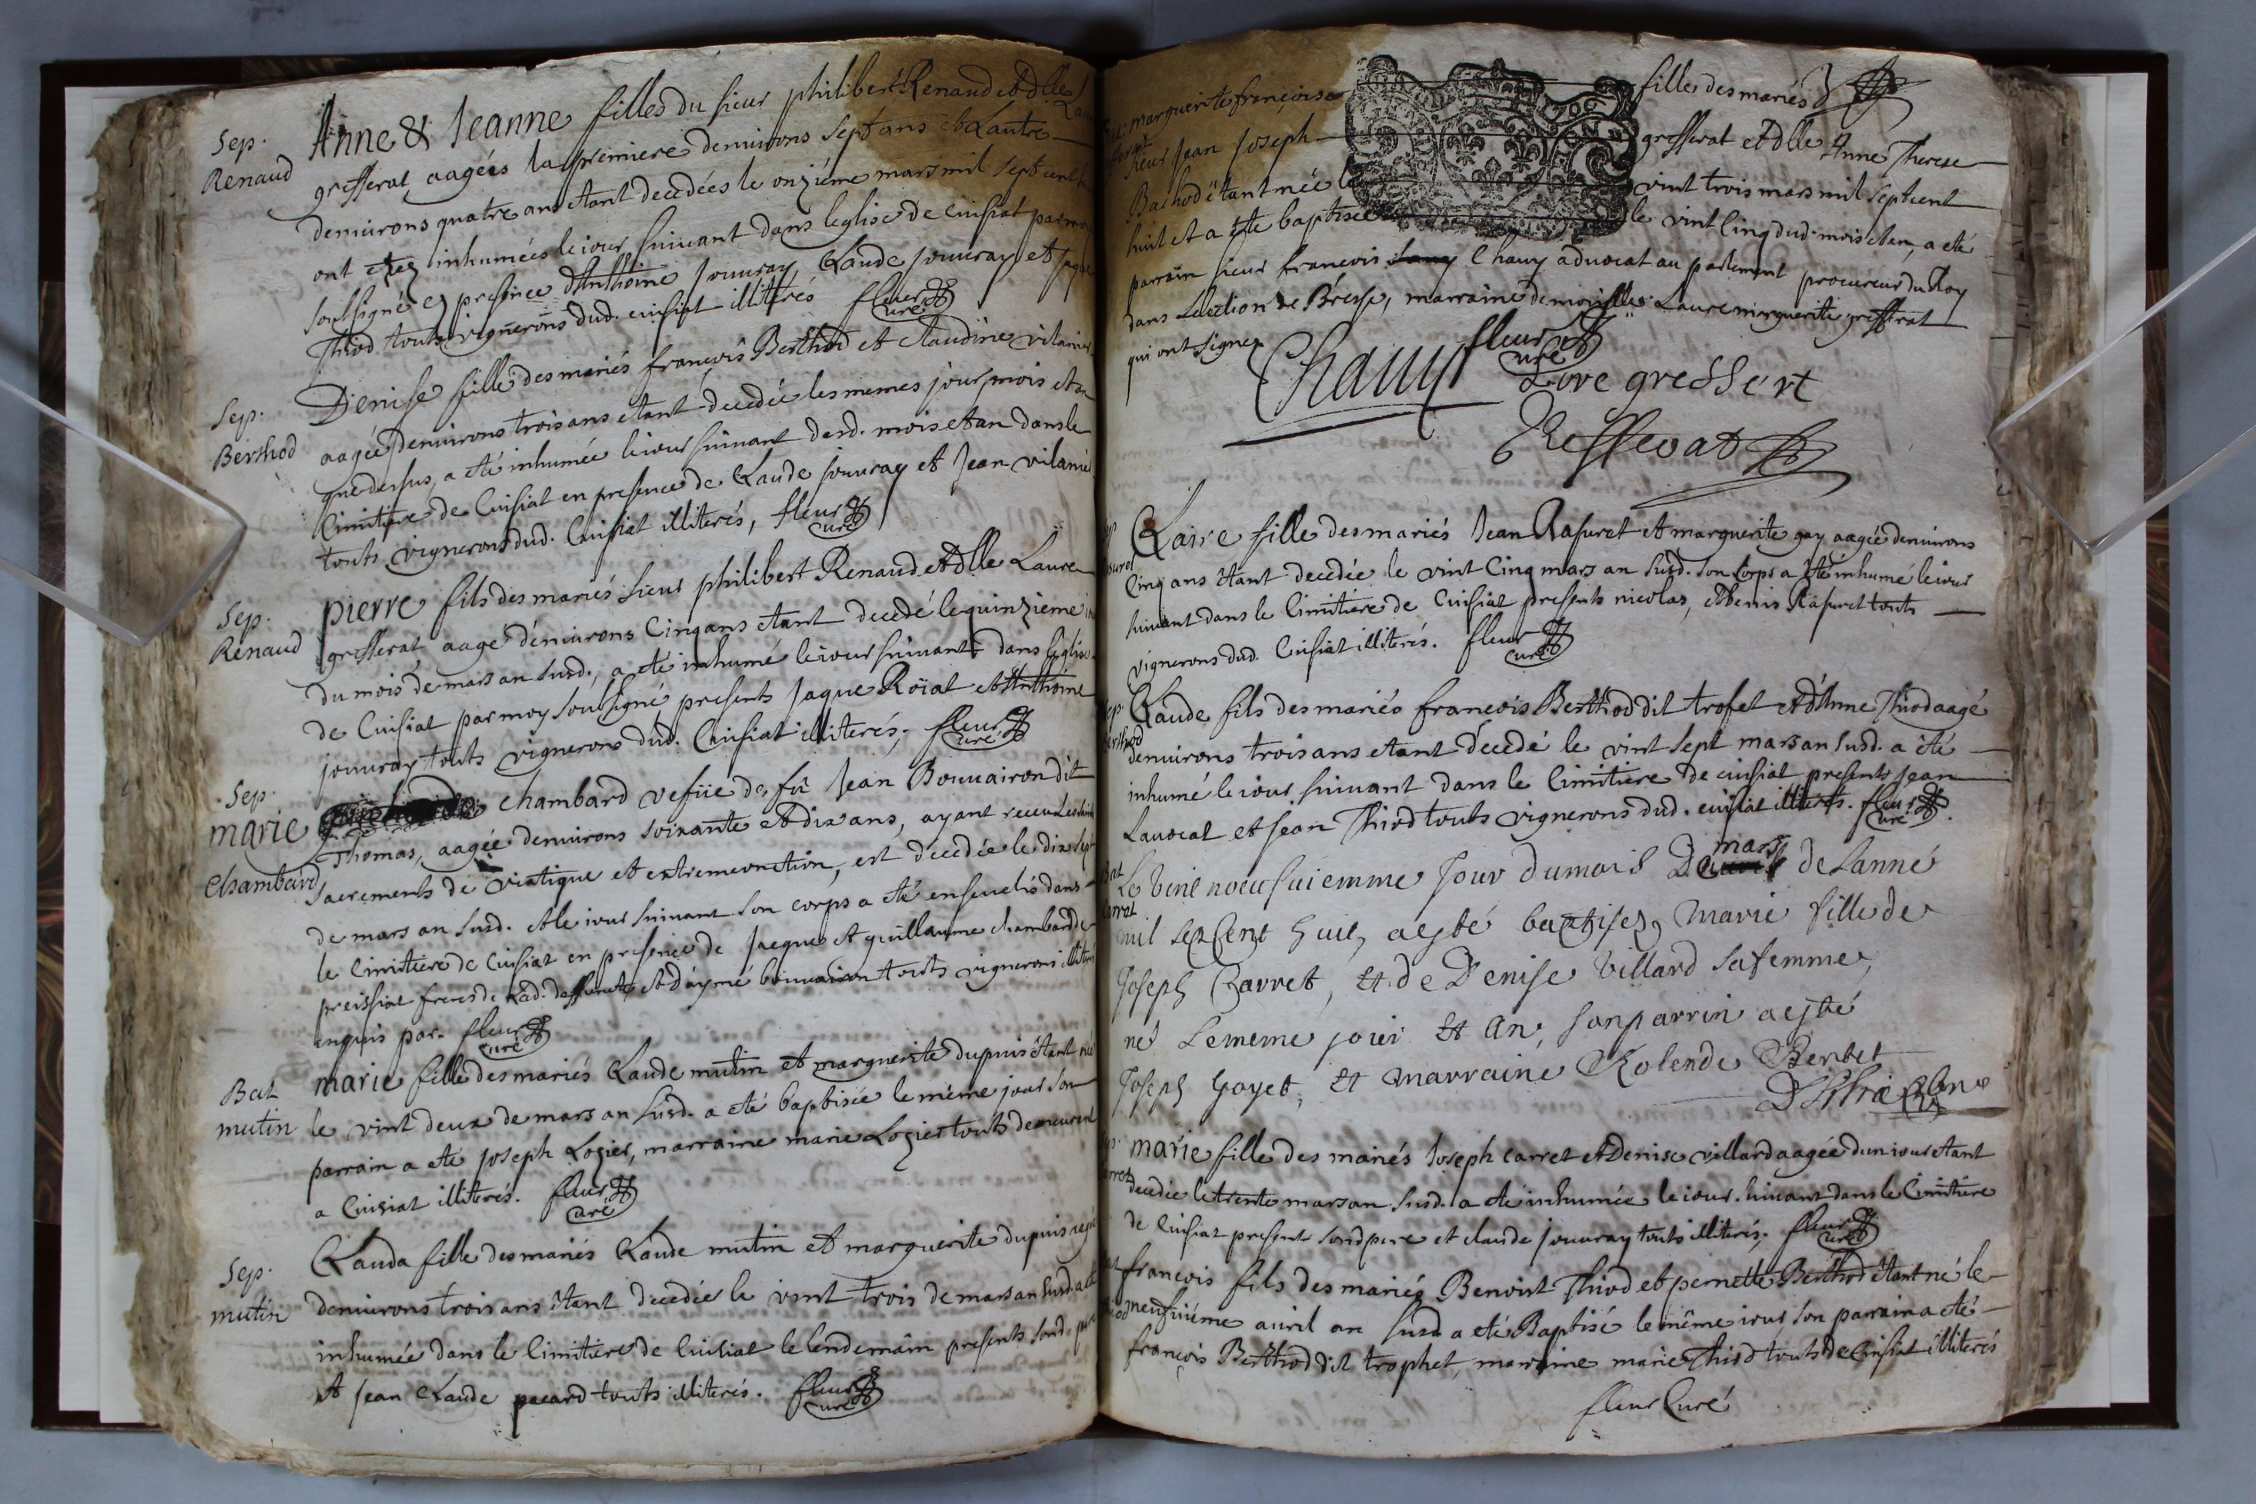 Sep.
Renaud
Anne & Jeanne filles du sieur philibert Renaud et dlle
gresserat aagées la premiere denuirons sept ans et Lautre
denuirons quatre ans etant decedées le onziéme mars mil sept cent
ont etez inhumées le iour suiuant dans leglise de cuisiat par moy
soussigné en presence d'Anthoine Jouuray, Claude jouuray et jaque
Thiod touts vignerons dud. cuisiat illiterés fleur curé
Sep.
Berthod
Denise fille des mariés françois Berthod et claudine vilanier
aagée denuirons trois ans etant decedée les memes jour, mois et an
que dessus, a eté inhumée le iour suiuant desd. mois et an dans le
Cimitiere de Cuisiat en presence de Claude jouuray et Jean vilanier
touts vignerons dud. Cuisiat illiterés, fleur curé
Sep.
Renaud
pierre fils des mariés sieur philibert Renaud et dlle Laure
gresserat aagé denuirons Cinq ans etant decedé le quinzieme
du mois de mars an susd., a eté inhumé le iour suiuant dans leglise
de Cuisiat par moy soussigné presents jaque Roïat et Anthoine
jouuray touts vignerons dud. Cuisiat illiterés, fleur curé
Sep.
marie
Chambard
chambard vefüe de fû Jean Bouuairon dit
Thomas, aagée denuirons soixante et dix ans, ayant receu les
sacrements de viatique et extremeonction, est decedée le dix sept
de mars an susd. et le iour suiuant son corps a eté enseueli dans
le Cimitiere de Cuisiat en presence de jacque et guillaume chambard de
preissiat freres de lad. deffunte, et d'aymé bouuairon touts vignerons illiterés
enquis par. fleur curé
Bat
mutin
marie fille des mariés Claude mutin et marguerite dupuis étant née
le vint deux de mars an susd. a eté baptisée le même jour son
parrain a eté joseph Lozier, marraine marie Lozier touts demeurant
a Cuisiat illiterés. fleur curé
Sep.
mutin
Clauda fille des mariés Claude mutin et marguerite dupuis aagée
denuirons trois ans étant decedée le vint trois de mars an susd. a eté
inhumée dans le Cimitiere de Cuisiat le lendemain presents sond. pere
et jean Claude pacard touts illiterés. fleur curé
marguerite françoise fille des mariés
sieur Jean Joseph gresserat et dlle Anne Therese
Bachod étant née le vint trois mars mil sept cent
huit et a eté baptisée le vint Cinq dud. mois et an, a eté
parrain sieur françois Chauy aduocat au parlement procureur du Roy
dans Lelection de Bresse, marraine demoiselle Laure marguerite gresserat
qui ont signez fleur curé
Chauy Lore gresseŕt
Gresserat
Claire fille des mariés Jean Rasuret et marguerite gay aagée denuirons
Cinq ans étant decedée le vint Cinq mars an susd. son Corps a eté inhumé le iour
suiuant dans le Cimitiére de Cuisiat presents nicolas, et denis Rasuret touts
vignerons dud. Cuisiat illiterés. fleur curé
Claude fils des mariés françois Berthod dit trofet et d'Anne Thiod aagé
denuirons trois ans etant decedé le vint sept mars an susd. a eté
inhumé le iour suiuant dans le Cimitiere de cuisiat presents jean
Lauocat et jean Thiod touts vignerons dud. cuisiat illiterés. fleur curé
mars
Le vint noeufuiemme Jour du mois De de Lanné
mil sepCent huit, aesté baptisez, Marie fille de
Joseph Carret, et de Denise Villard safemme,
né Lememe jour et an, son parrin aesté
Joseph Goyet, et marraine Rolende Berbet
marie fille des mariés Joseph carret et Denise villard aagée dun iour etant
decedée le trente mars an susd. a eté inhumée le iour suiuant dans le Cimitiére
de Cuisiat presents sond pere et claude jouuray touts illiterés. fleur curé
françois fils des mariés Benoist Thiod et pernette Berthod étant né le
neufuiéme auril an susd a eté Baptisé le même iour, son parrain a eté
françois Berthod dit trophet, marraine marie Thiod touts de Cuisiat illiterés
fleur Curé